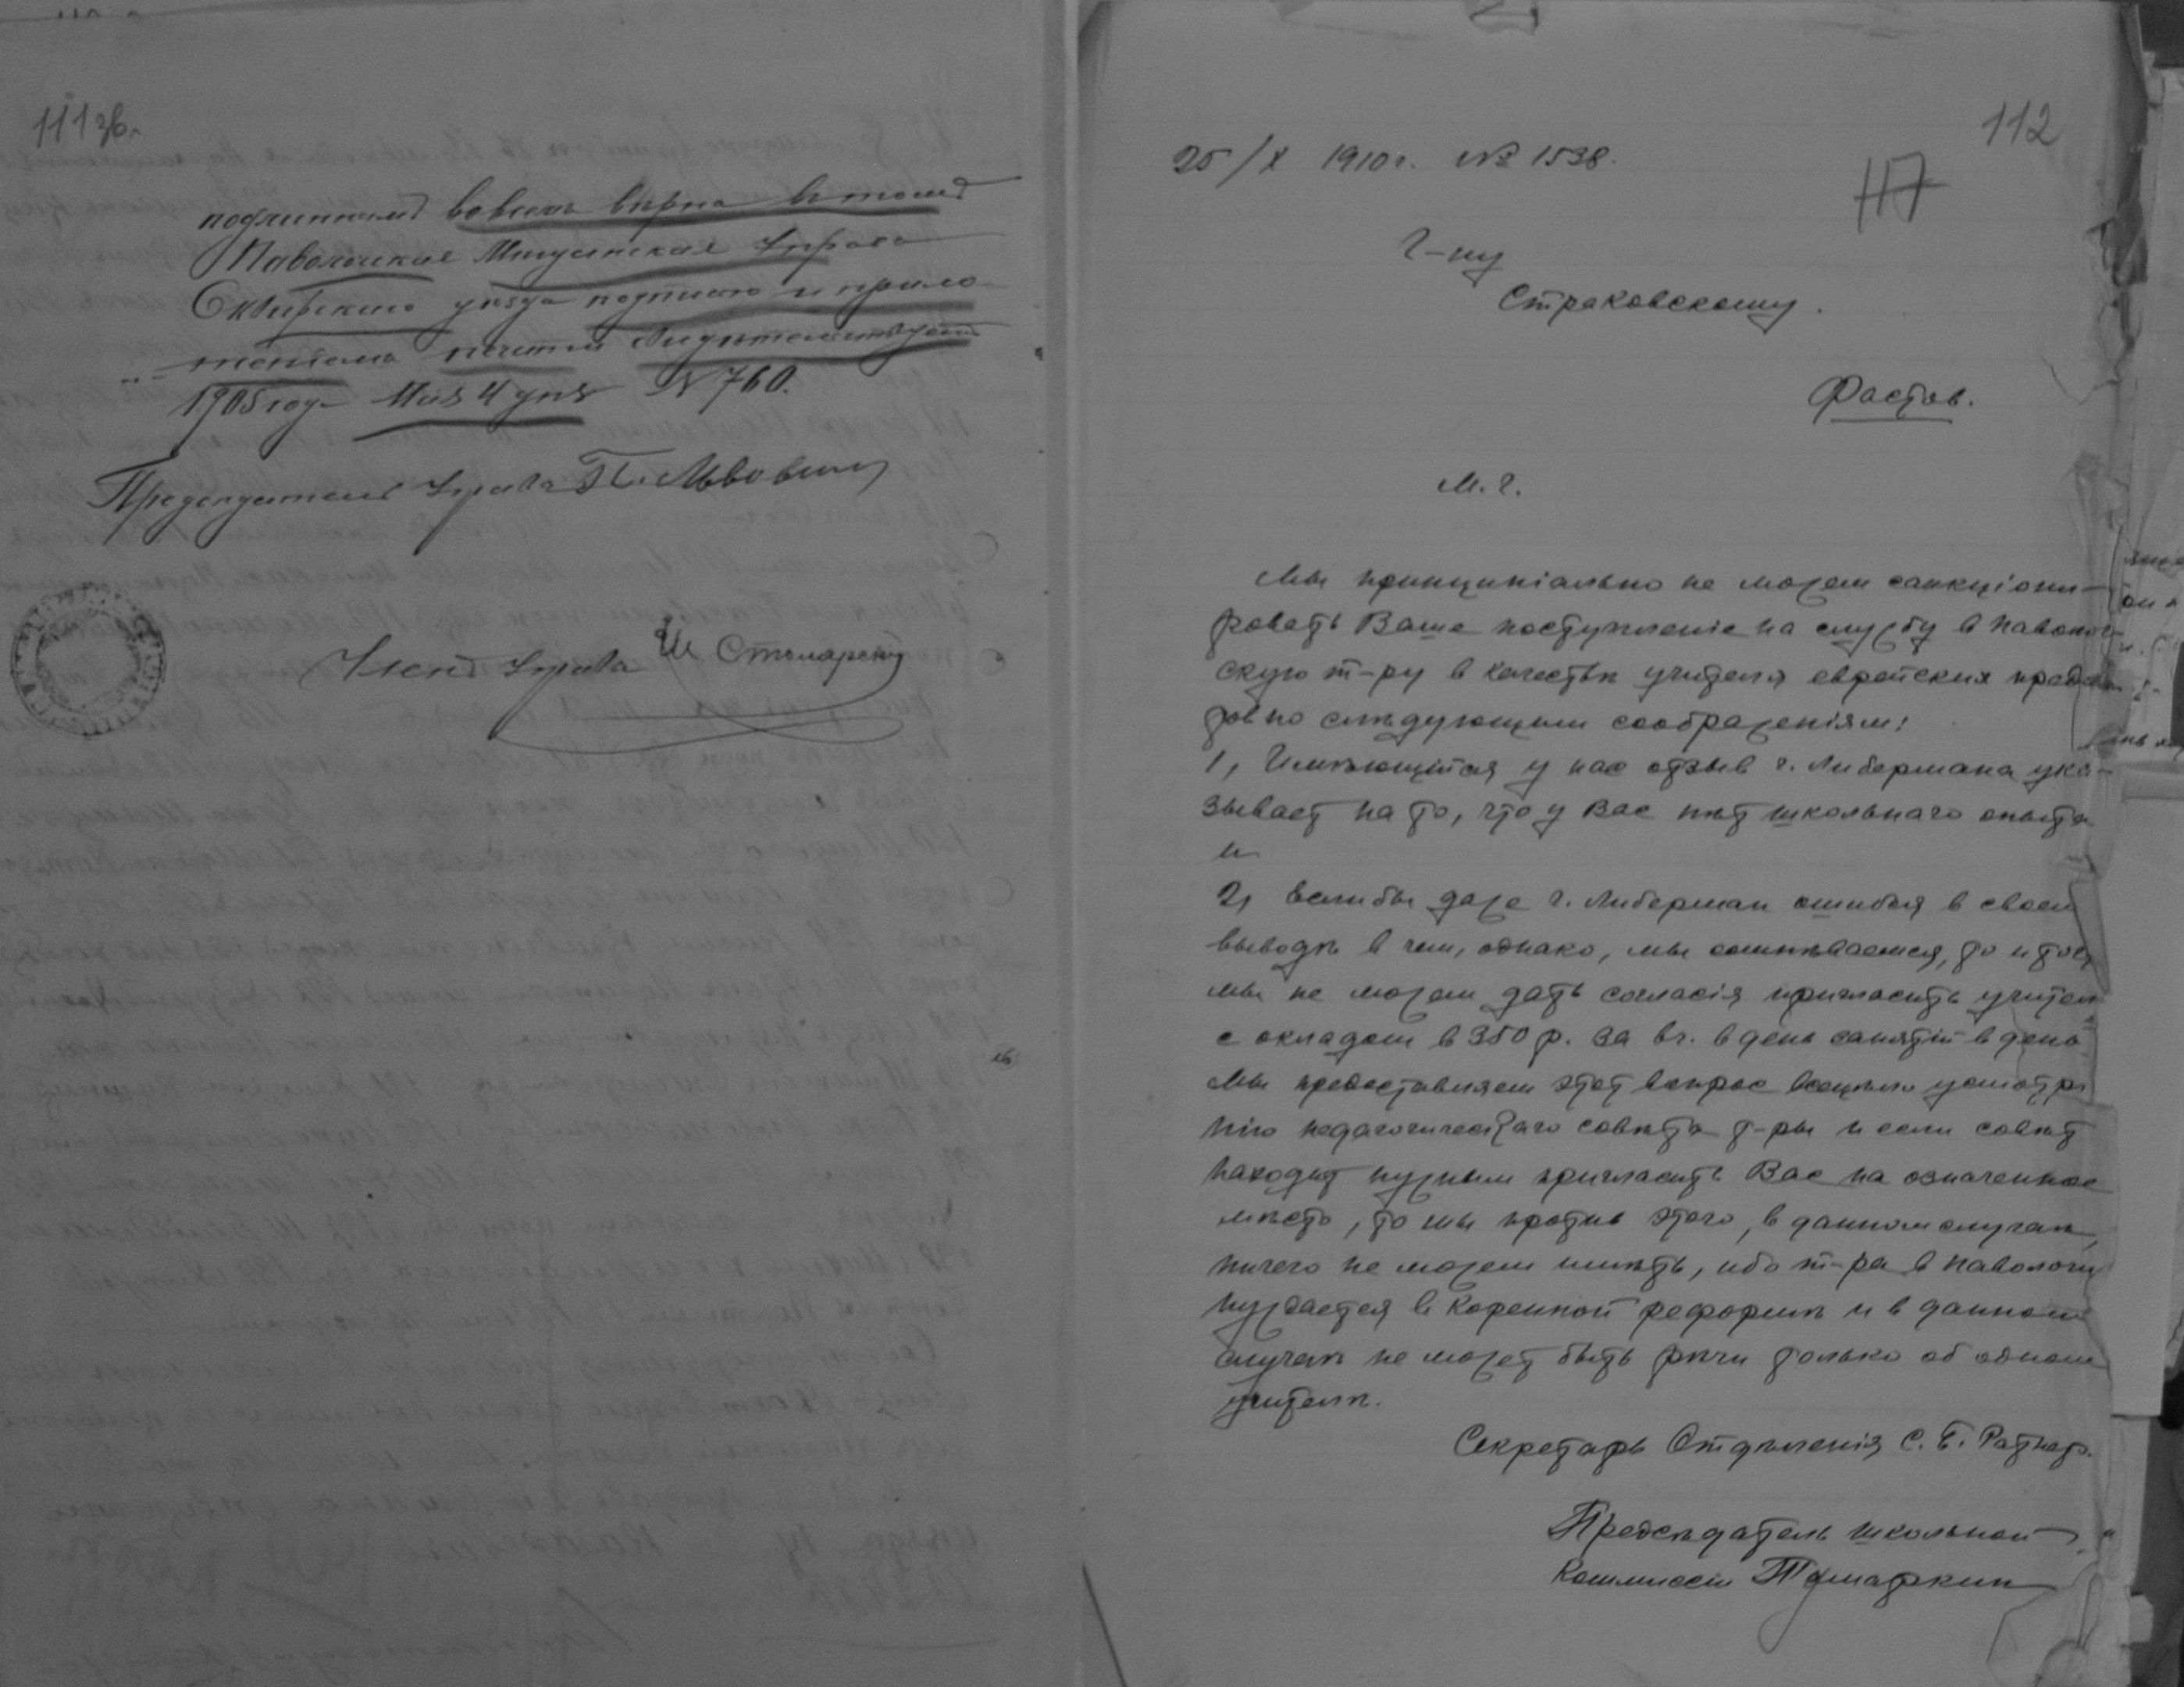 111 зв.
подлиннымъ во всемъ вѣрна въ томъ
Паволочская Мещанская Управа
Сквирскаго уѣзда подписью и прило-
женіемъ печати свидѣтельствуетъ
1905 года Мая 4 дня N 760.
Предсѣдатель Управы П. Львовичъ
Членъ Управы Ш Столяренъ
112
117
25/X 1910 г. № 1538.
Г-ну
Страковскому.
Фастов.
М. г.
Мы принципіально не можем санкціони-
ровать Ваше поступленіе на службу в Паволоч-
скую т-ру в качествѣ учителя еврейских предме-
тов по слѣдующим соображеніям:
1, Имѣющійся у нас отзыв г. Либермана ука-
зывает на то, что у Вас нѣт школьнаго опыта
и
2, Если бы даже г. Либерман ошибся в своем
выводѣ в чем, однако, мы сомнѣваемся, то и тогда
мы не можем дать согласія пригласить учителя
с окладом в 350 р. за 6 ч. в день занятій в день
Мы предоставляем этот вопрос всецѣло усмотрѣ
нію педагогическаго совѣта т-ры и если совѣт
находит нужным пригласить Вас на означенное
мѣсто, то мы против этого, в данном случаѣ,
ничего не можем имѣть, ибо т-ра в Паволочи
нуждается в коренной реформѣ и в данном
случаѣ не может быть рѣчи только об одном
учителѣ.
Секретарь Отдѣленія С. Б. Ратнер.
Предсѣдатель школьной
Коммиссіи Тумаркин